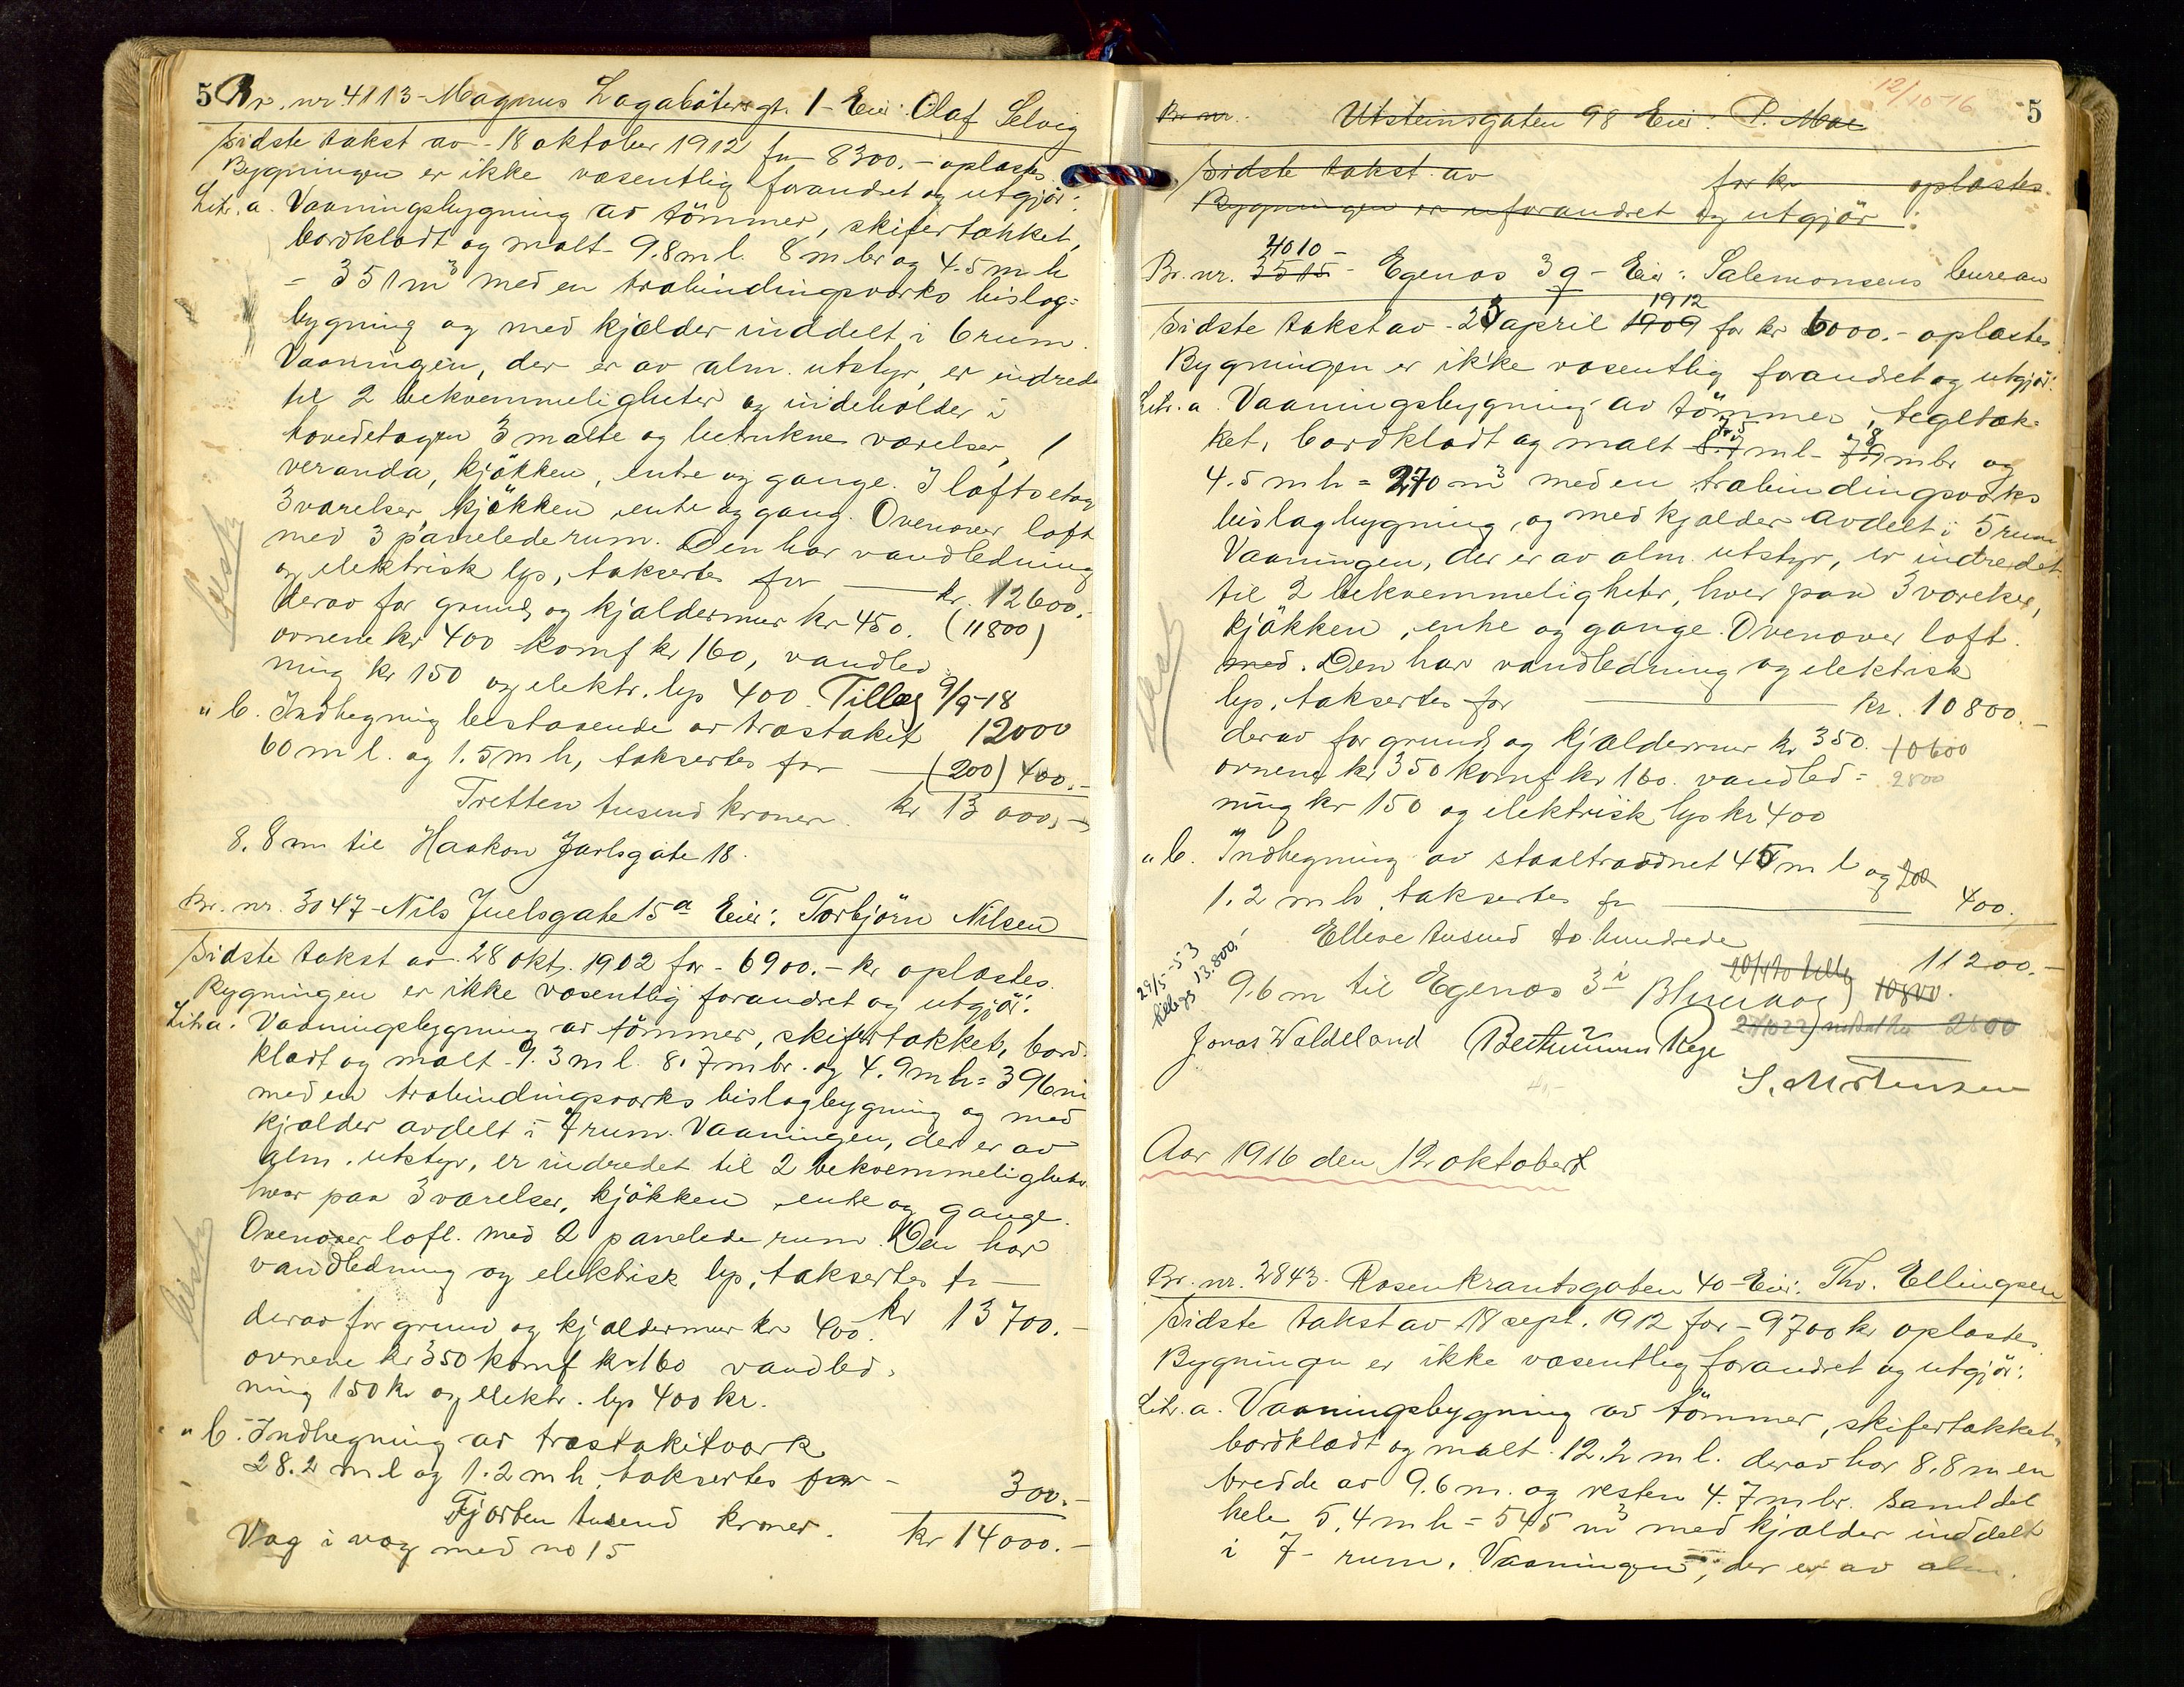 5
Br. nr 4113 - Magnus Lagabøtersgt. 1 - Eier: Olaf Selvig
Sidste takst av - 18 oktober 1912 for 8300.- oplæstes.
Bygningen er ikke væsentlig forandret og utgjør:
Litr. a. Vaaningsbygning av tömmer, skifertækket,
bordklædt og malt - 9.8 m l. 8 m br og 4.5 m h
= 351 m³ med en træbindingsværks bislag-
bygning og med kjælder inddelt i 6 rum.
Vaaningen, der er av alm. utstyr, er indredet
til 2 bekvemmeligheter og indeholder i
hovedetagen 3 malte og betrukne værelser, 1
veranda, kjökken, entre og gange. I loftsetag
3 værelser, kjökken entre og gang. Ovenover loft
med 3 panelede rum. Den har vandledning
og elektrisk lys, taksertes for kr. 12600.-
derav for grund og kjældermur kr 450. (11800)
ovnene kr 400 komf kr 160, vandled-
ning kr 150 og elektr. lys 400. Tillæg 9/9-18
" b. Indhegning bestaaende av træstakit 12000
60 m l. og 1.5 m h, taksertes for (200) 400.-
Tretten tusend kroner. kr 13 000,-
8.8 m til Haakon Jarlsgate 18.
Br. nr. 3047 - Nils Juelsgate 15a Eier: Torbjörn Nilsen
Sidste takst av 28 okt. 1902 for - 6900.- kr oplæstes.
Bygningen er ikke væsentlig forandret og utgjör:
Litr a. Vaaningsbygning av tömmer, skifertækket, bord-
klædt og malt - 9.3 m l. 8.7 m br. og 4.9 m h = 396 m
med en træbindingsværks bislagbygning og med
kjælder avdelt i 7 rum. Vaaningen, der er av
alm. utstyr, er indredet til 2 bekvemmeligheter
hver paa 3 værelser, kjökken entre og gange.
Ovenover loft. med 2 panelede rum. Den har
vandledning og elektrisk lys, taksertes for
kr 13700.-
derav for grund og kjældermur kr 400.
ovnene kr 350 komf kr 160 vandled-
ning 150 kr og elektr. lys 400 kr.
" b. Indhegning av træstakitværk
28.2 m l og 1.2 m h, taksertes for - 300.-
Fjorten tusend kroner. kr 14000.-
Væg i væg med no 15
12/10-16
5
Br. nr. Utsteinsgaten 98 Eier: P. Moe
Sidste takst av for kr oplæstes.
Bygningen er uforandret og utgjör:
4010 -
Br. nr. 3515 - Egenæs 3g - Eier: Salemonsens bureau
1912
Sidste takst av - 23 april 1909 for kr 6000.- oplæstes
Bygningen er ikke væsentlig forandret og utgjör:
Litr. a. Vaaningsbygning av tömmer, tegltæk-
ket, bordklædt og malt 8.7 7.5 m l - 7.9 8 m br og
4.5 m h = 270 m³ med en træbindingsværks
bislagbygning, og med kjælder avdelt i 5 rum
Vaaningen, der er av alm. utstyr, er indredet
til 2 bekvemmeligheter, hver paa 3 værelser,
kjökken, entre og gange. Ovenover loft.
med. Den har vandledning og elektrisk
lys, taksertes for kr. 10800.-
derav for grund og kjældermur kr 350. 10600
ovnene kr 350 komf kr 160. vandled- 2800
ning kr 150 og elektrisk lys kr 400
" b. Indhegning av staaltraadnet 45 m l og 200
1.2 m h, taksertes for 400.
Elleve tusend to hundrede 11200.-
29/5-53
tillegg 13.800.-
9.6 m til Egenæs 3i 10800.
2800
Jonas Waldeland Rege
S. Mortensen
Aar 1916 den 12 oktober
Br. nr. 2843. Rosenkrantsgaten 40 - Eier: Thv. Ellingsen
Sidste takst av 18 sept. 1912 for - 9700 kr oplæstes.
Bygningen er ikke væsentlig forandret og utgjör:
Litr. a. Vaaningsbygning av tömmer, skifertækket,
bordklædt og malt. 12.2 m l. derav har 8.8 m en
bredde av 9.6 m. og resten 4.7 m br. samt det
hele 5.4 m h = 545 m³ med kjælder inddelt
i 7 - rum. Vaaningen, der er av alm.